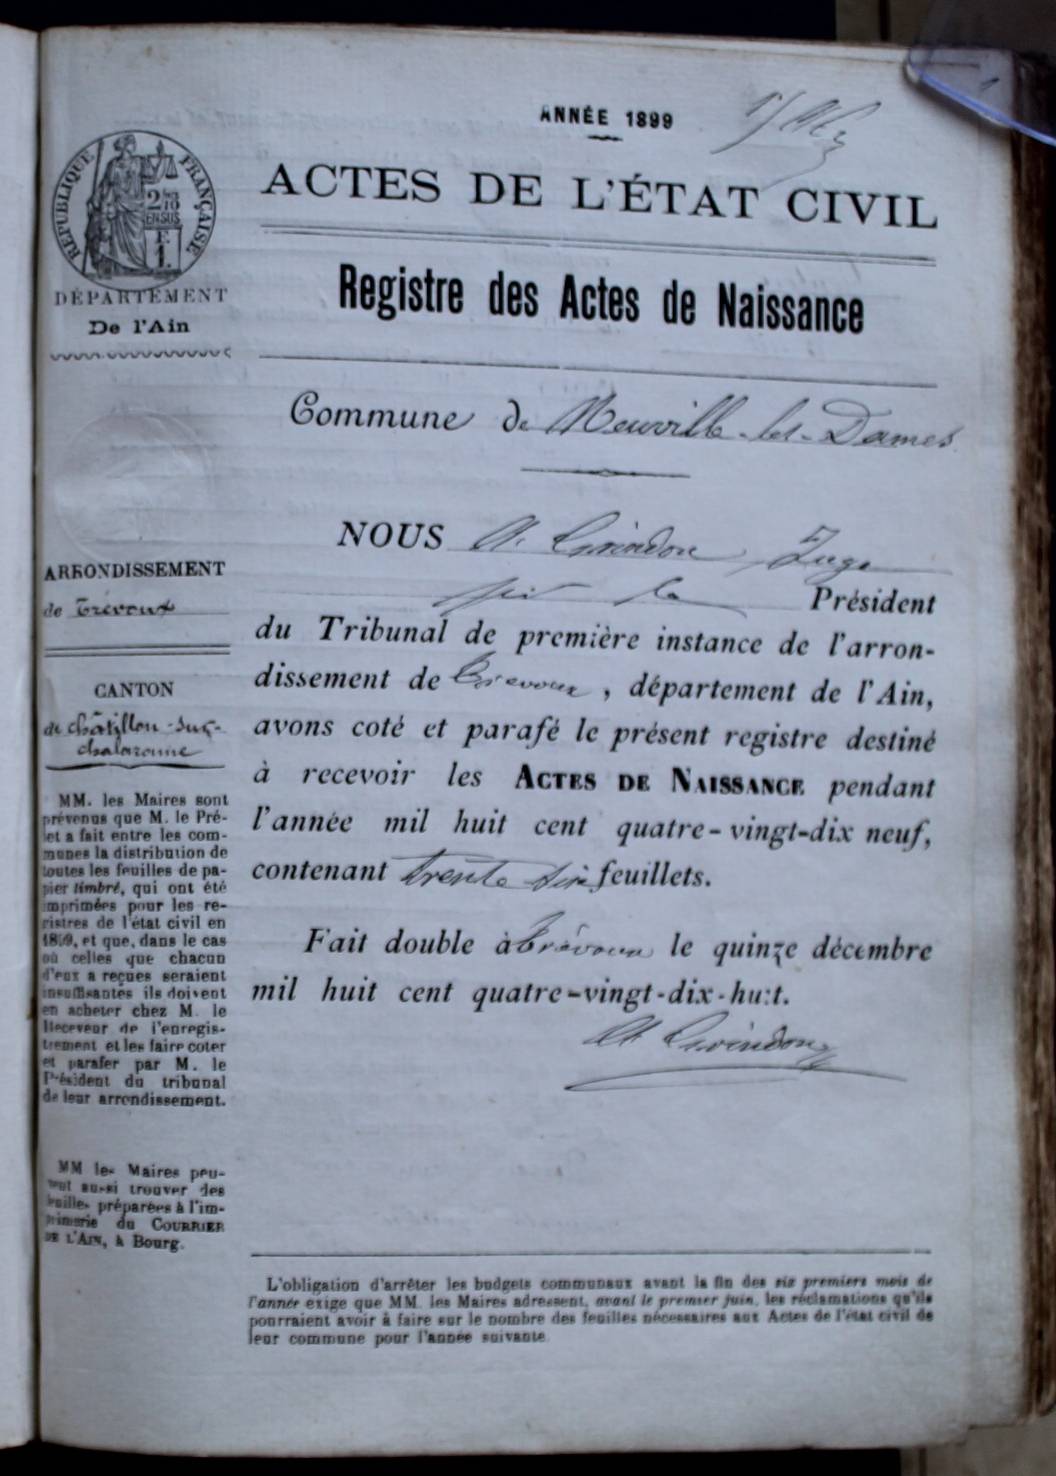 ANNÉE 1899
ACTES DE L'ÉTAT CIVIL
RÉPUBLIQUE FRANÇAISE
DÉPARTEMENT
De l'Ain
Registre des Actes de Naissance
Commune de Neuville-les-Dames
ARRONDISSEMENT
de Trévoux
CANTON
de Châtillon-sur-
Chalaronne
MM. les Maires sont
prévenus que M. le Pré-
et a fait entre les com-
munes la distribution de
toutes les feuilles de pa-
pier timbré, qui ont été
imprimées pour les re-
ristres de l'état civil en
1899, et que, dans le cas
où celles que chacun
d'eux a reçues seraient
insuffisantes ils doivent
en acheter chez M. le
Receveur de l'enregis-
trement et les faire coter
et parafer par M. le
Président du tribunal
de leur arrondissement.
MM les Maires peu-
vent aussi trouver des
feuilles préparées à l'im-
primerie du COURRIER
DE L'AIN, à Bourg.
NOUS A. Grindon, Juge
Président
du Tribunal de première instance de l'arron-
dissement de Trévoux, département de l'Ain,
avons coté et parafé le présent registre destiné
à recevoir les ACTES DE NAISSANCE pendant
l'année mil huit cent quatre-vingt-dix neuf,
contenant trente six feuillets.
Fait double à Trévoux le quinze décembre
mil huit cent quatre-vingt-dix-huit.
A. Grindon
L'obligation d'arrêter les budgets communaux avant la fin des six premiers mois de
l'année exige que MM. les Maires adressent, avant le premier juin, les réclamations qu'ils
pourraient avoir à faire sur le nombre des feuilles nécessaires aux Actes de l'état civil de
leur commune pour l'année suivante.